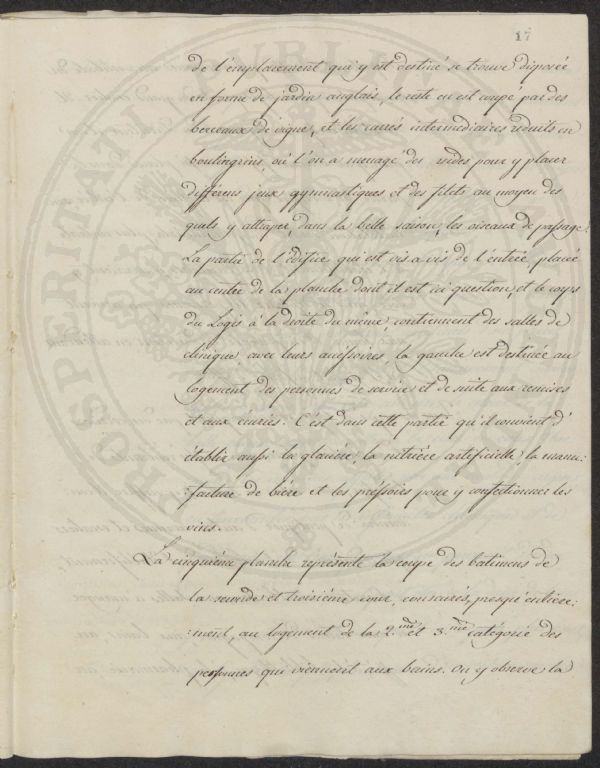 17
de l'emplacement qui y est destiné se trouve disposée
en forme de jardin anglais, le reste en est coupé par des
berceaux de vigne, et les carrés intermédiaires réduits en
boulingrins, où l'on a menagé des vuides pour y placer
différens jeux gymnastiques et des filets au moyen des
quels y attraper, dans la belle saison, les oiseaux de passage.
La partie de l'édifice qui est vis a vis de l'entrée, placée
au centre de la planche dont il est ici question, et le corps
du Logis à la droite du même, contiennent des salles de
clinique avec leurs accéssoires, la gauche est destinée au
logement des personnes de service et de suite aux remises
et aux écuries. C'est dans cette partie qu'il convient d'
établir aussi la glacière, la nitrière artificielle, la manu:
:facture de bière et les préssoirs pour y confectionner les
vins.
La cinquième planche représente la coupe des batimens de
la seconde et troisième cour, consacrés, presqu'entière:
:ment, au logement de la 2.me et 3.me catégorie des
personnes qui viennent aux bains. On y observe la
PROSPERITATI PUBLICAE